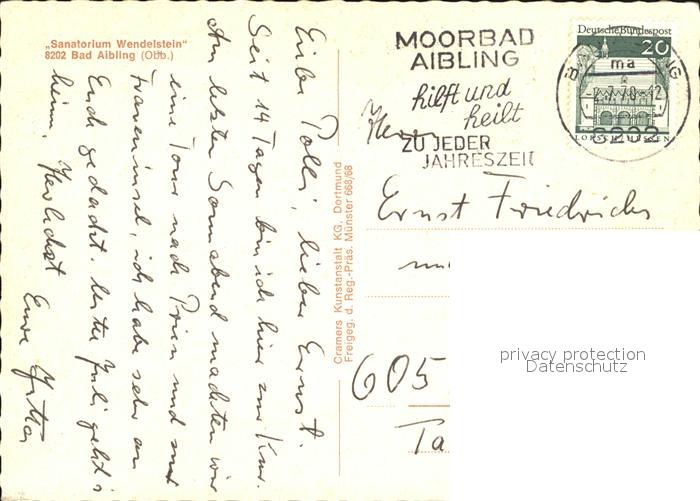 „Sanatorium Wendelstein"
8202 Bad Aibling (Obb.)
Liebe Polli, lieber Ernst.
Seit 14 Tagen bin ich hier zur Kur.
Am letzten Sonnabend machten wir
eine Tour nach Prien und
Fraueninsel, ich habe sehr an
Euch gedacht. Juli geht's
heim. Herlichst Eure
Cramers Kunstanstalt KG, Dortmund
Freigeg. d. Reg.-Präs. Münster 668/68
MOORBAD
AIBLING
hilft und
heilt
ZU JEDER
JAHRESZEIT
Deutsche Bundespost
20
ma
8202
LORSCH/HESSEN
Herrn
Ernst Friedrichs
605
Ta
privacy protection
Datenschutz